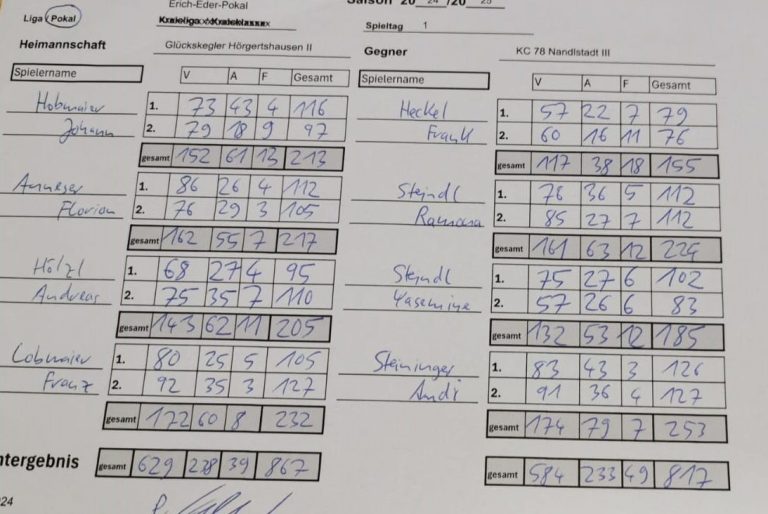 Erich-Eder-Pokal
Saison 20 24 /20 25
Liga Pokal
Spieltag 1
Heimmannschaft Glückskegler Hörgertshausen II Gegner KC 78 Nandlstadt III
Spielername V A F Gesamt Spielername V A F Gesamt
Hobmaier 1. 73 43 4 116 Heckel 1. 57 22 7 79
Johann 2. 79 18 9 97 Frank 2. 60 16 11 76
gesamt 152 61 13 213 gesamt 117 38 18 155
Anneser 1. 86 26 4 112 Steindl 1. 76 36 5 112
Florian 2. 76 29 3 105 Ramona 2. 85 27 7 112
gesamt 162 55 7 217 gesamt 161 63 12 224
Hölzl 1. 68 27 4 95 Steindl 1. 75 27 6 102
Andreas 2. 75 35 7 110 Yasemine 2. 57 26 6 83
gesamt 143 62 11 205 gesamt 132 53 12 185
Lobmaier 1. 80 25 5 105 Steininger 1. 83 43 3 126
Franz 2. 92 35 3 127 Andi 2. 91 36 4 127
gesamt 172 60 8 232 gesamt 174 79 7 253
ntergebnis gesamt 629 238 39 867 gesamt 584 233 49 817
024